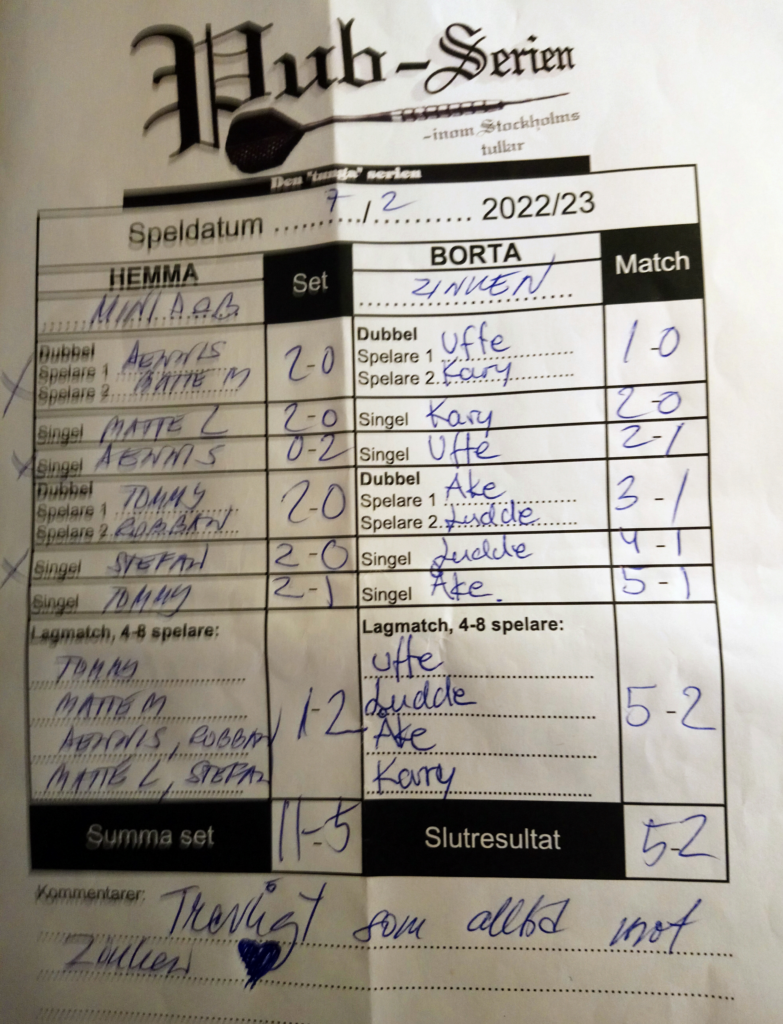 Pub-Serien
-inom Stockholms
tullar
Den "tunga" serien
Speldatum 7/2 2022/23
HEMMA Set BORTA Match
MINI ZINKEN
Dubbel Dubbel
Spelare 1 AENNIS 2-0 Spelare 1 Uffe 1-0
Spelare 2 MATTE M Spelare 2 Kary
Singel MATTE L 2-0 Singel Kary 2-0
Singel AENNIS 0-2 Singel Uffe 2-1
Dubbel Dubbel
Spelare 1 TOMMY 2-0 Spelare 1 Åke 3-1
Spelare 2 ROBBAN Spelare 2 Ludde
Singel STEFAN 2-0 Singel Ludde 4-1
Singel TOMMY 2-1 Singel Åke. 5-1
Lagmatch, 4-8 spelare: Lagmatch, 4-8 spelare:
TOMMY Uffe
MATTE M 1-2 Ludde 5-2
AENNIS, ROBBAN Åke
MATTE L, STEFAN Kary
Summa set 11-5 Slutresultat 5-2
Kommentarer: Trevligt som alltid mot
Zinken